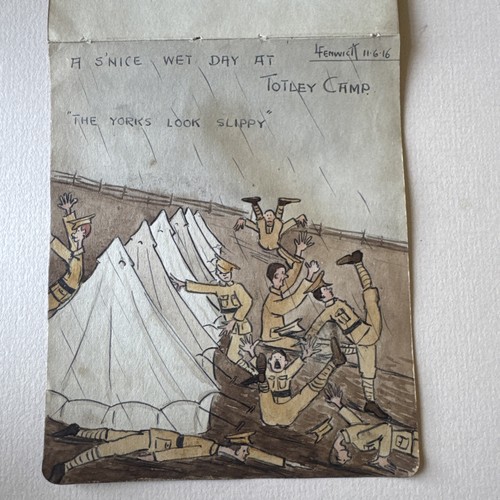 A S'NICE WET DAY AT
LFENWICK 11·6·16
TOTLEY CAMP.
"THE YORKS LOOK SLIPPY"